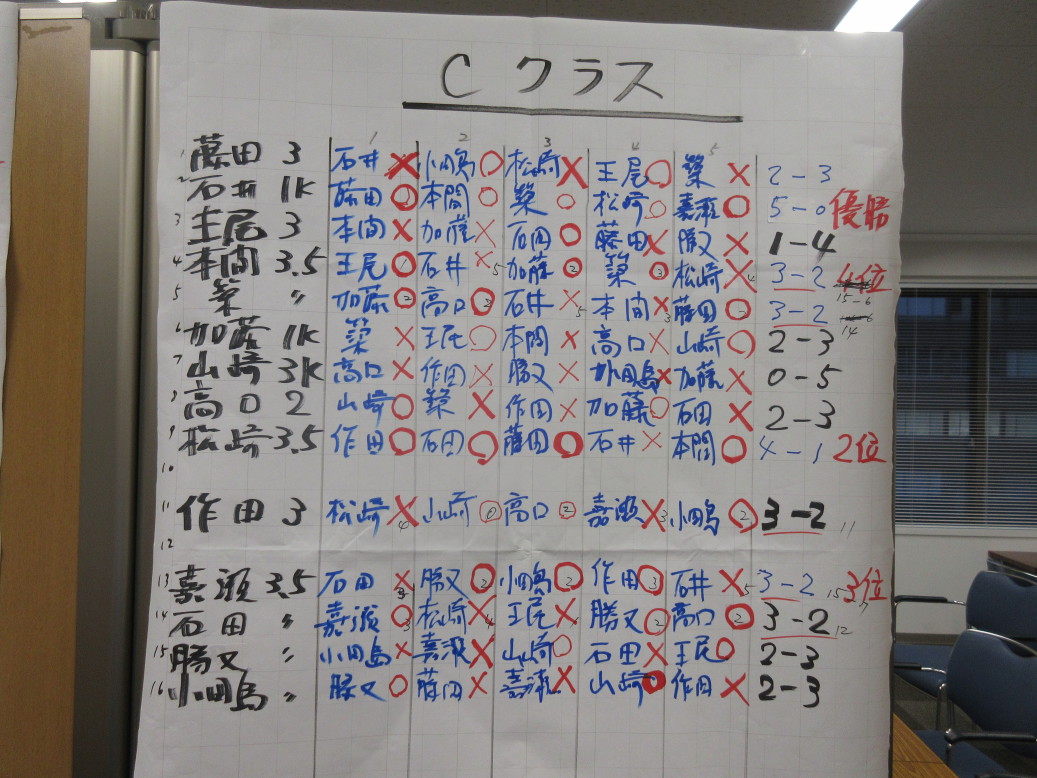 Cクラス
1 2 3 4 5
1 藤田 3 石井 × 小田嶋 ○ 松崎 × 王尾 ○ 築 × 2-3
2 石井 1K 藤田 ○ 本間 ○ 築 ○ 松崎 ○ 嘉瀬 ○ 5-0 優勝
3 王尾 3 本間 × 加藤 × 石田 ○ 藤田 × 勝又 × 1-4
4 本間 3.5 王尾 ○ 石井 × 5 加藤 ② 築 ③ 松崎 × 4 3-2 4位 15-6
5 築 〃 加藤 ② 高口 ② 石井 × 5 本間 × 3 藤田 ② 3-2 14
6 加藤 1K 築 × 王尾 ○ 本間 × 高口 × 山崎 ○ 2-3
7 山崎 3K 高口 × 作田 × 勝又 × 小田嶋 × 加藤 × 0-5
8 高口 2 山崎 ○ 築 × 作田 × 加藤 ○ 石田 × 2-3
9 松崎 3.5 作田 ○ 石田 ○ 藤田 ○ 石井 × 本間 ○ 4-1 2位
10
11 作田 3 松崎 × 4 山崎 ⓪ 高口 ② 嘉瀬 × 3 小田嶋 ② 3-2 11
12
13 嘉瀬 3.5 石田 × 3 勝又 ② 小田嶋 ② 作田 ③ 石井 × 5 3-2 15 3位
14 石田 〃 嘉瀬 ③ 松崎 × 4 王尾 × 勝又 ② 高口 ② 3-2 12
15 勝又 〃 小田島 × 嘉瀬 × 山崎 ○ 石田 × 王尾 ○ 2-3
16 小田嶋 〃 勝又 ○ 藤田 × 嘉瀬 × 山崎 ○ 作田 × 2-3